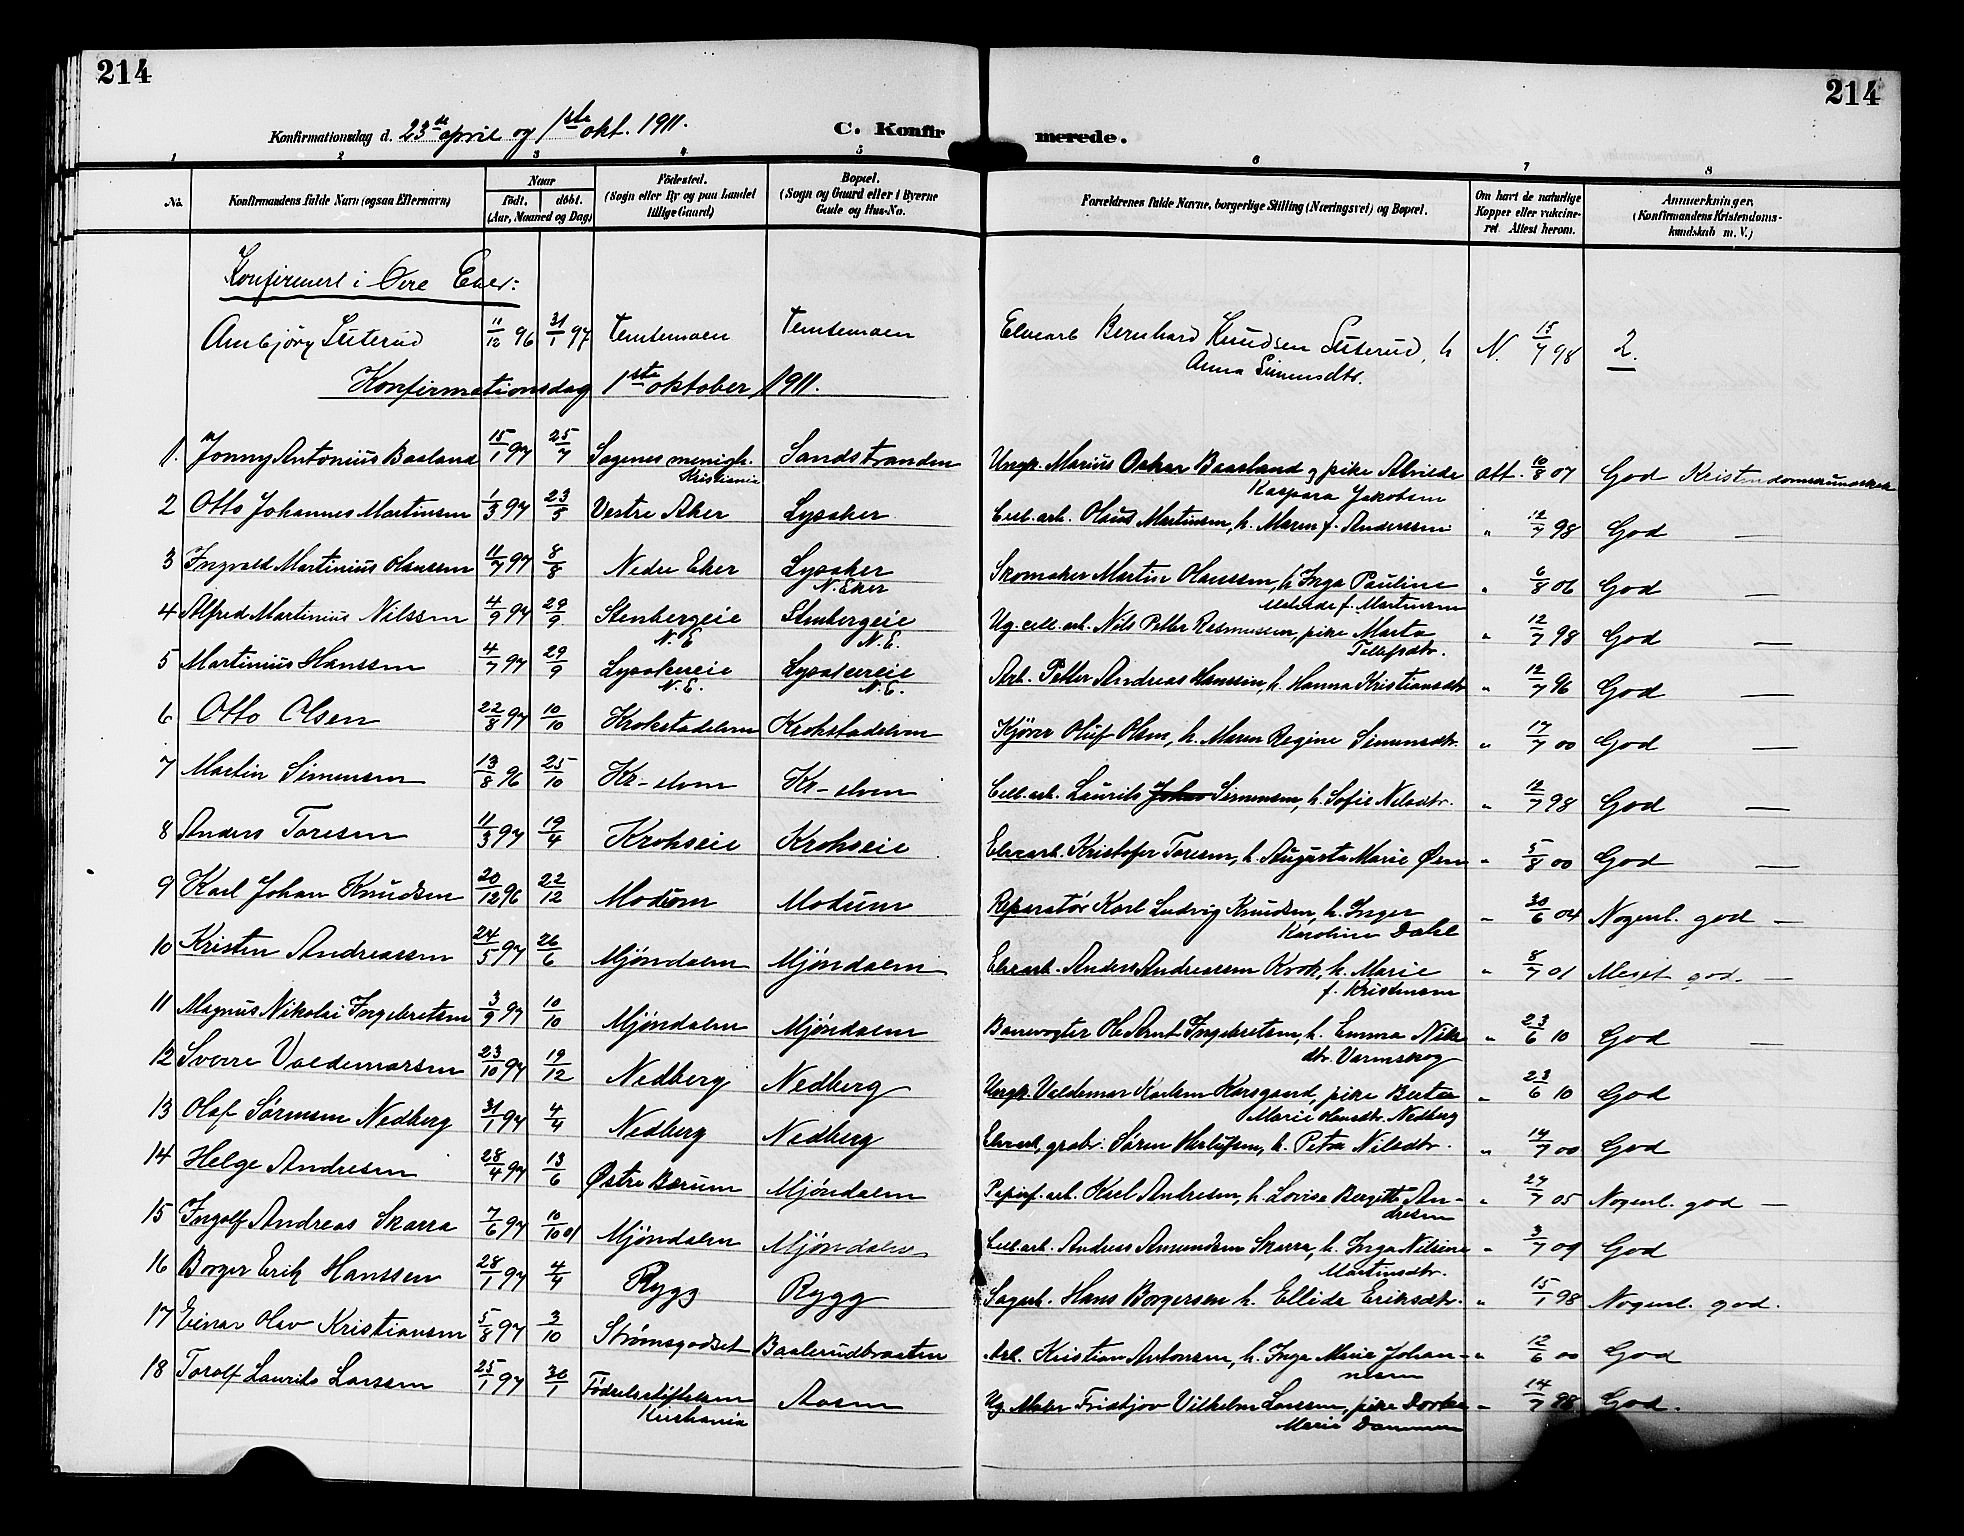 214
214
Konfirmationsdag d. 23de april og 1ste okt. 1911.
C. Konfirmerede.
1 2 3 4 5 6 7 8
No. Konfirmandens fulde Navn (ogsaa Efternavn) Naar født. døbt. (Aar, Maaned og Dag) Fødested. (Sogn eller By og paa Landet tillige Gaard) Bopæl. (Sogn og Gaard eller i Byerne Gade og Hus-No. Forældrenes fulde Navne, borgerlige Stilling (Næringsvei) og Bopæl. Om havt de naturlige Kopper eller vaccineret. Attest herom. Anmerkninger. (Konfirmandens Kristendomskundskab m. V.)
Konfirmert i Øvre Eker:
Ambjörg Suterud 11/12 96 31/1 97 Temtemoen Temtemoen Elvearb Bernhard Knudsen Suterud, h Anna Simensdtr. N. 15/7 98 2.
Konfirmationsdag 1ste oktober 1911.
1. Jonny Antonius Baaland 15/1 97 25/7 Sagenes menigh. Kristiania Sandstranden Ungk. Marius Oskar Baasland og pike Alvilde Kaspara Jakobsen Att. 10/8 07 God Kristendomskundskab
2 Otto Johannes Martinsen 1/3 97 23/5 Vestre Aker Lysaker Cell.arb. Olaus Martinsen, h. Maren f. Anderssen " 12/7 98 God —
3 Ingvald Martinius Olaussen 11/7 97 8/8 Nedre Eker Lysaker N. Eker Skomaker Martin Olaussen, h. Inga Pauline f. Martinsen " 6/8 06 God —
4 Alfred Martinius Nilssen 4/9 97 29/9 Stenbergeie N. E Stenbergeie N. E. Ug. cell. arb. Nils Petter Rasmussen, pike Marta Tellefsdtr. " 12/7 98 God —
5 Martinius Hanssen 4/7 97 29/9 Lysakereie N. E. Lysakereie N. E. Arb. Petter Andreas Hanssen, h. Hanna Kristiansdtr " 12/7 96 God —
6 Otto Olsen 22/8 97 10/10 Krokstadelven Krokstadelven Kjører Oluf Olsen, h. Maren Regine Simensdtr. " 17/7 00 God —
7 Martin Simensen 13/8 96 25/10 Kr-elven Kr-elven Cell.arb. Laurits Johan Simensen, h. Sofie Nilsdtr. " 12/7 98 God —
8 Anders Toresen 11/3 97 19/4 Krokseie Krokseie Elvearb. Kristofer Toresen, h. Augusta Marie Øen " 5/8 00 God —
9 Karl Johan Knudsen 20/12 96 22/12 Modum Modum Reparatør Karl Ludvig Knudsen, h. Inger Karoline Dahl " 30/6 04 Nogenl. god —
10 Kristen Andreassen 24/5 97 26/6 Mjöndalen Mjöndalen Elvearb. Anders Andreassen Krok, h. Marie f. Kristensen " 8/7 01 Meget god. —
11 Magnus Nikolai Ingebretsen 3/9 97 10/10 Mjöndalen Mjöndalen Banevogter Ole Arnt Ingebretsen, h. Emma Nilsdtr. Varmskog " 23/6 10 God —
12 Sverre Valdemarsen 23/10 97 19/12 Nedberg Nedberg Ungk. Valdemar Karlsen Korsgaard, pike Berta Marie Hansdtr. Nedberg " 23/6 10 God
13 Olaf Sørensen Nedberg 31/1 97 4/4 Nedberg Nedberg Elvearb., grabr. Søren Herlufsen, h. Petra Nilsdtr. " 14/7 00 God
14 Helge Andresen 28/4 97 13/6 Østre Bærum Mjöndalen Papirf. arb. Karl Andresen, h. Lovise Bergitte Andresen " 27/7 05 Nogenl. god —
15 Ingolf Andreas Skarra 7/6 97 10/10 01 Mjöndalen Mjöndalen Cell.arb. Anders Amundsen Skarra, h. Inga Nilsine Martinsdtr. " 3/7 09 God
16 Borger Erik Hanssen 28/1 97 4/4 Rygg Rygg Sagarb. Hans Borgersen h. Ellida Eriksdtr. " 15/1 98 Nogenl. god.
17 Einar Olav Kristiansen 5/8 97 3/10 Strømsgodset Baalerudbraaten Arb. Kristian Antonsen, h. Inga Marie Johannesen " 12/6 00 God
18 Torolf Laurits Larssen 25/1 97 30/1 Fødselsstiftelsen Kristiania Aasen Ug. Maler Fridtjov Vilhelm Larssen, pike Dortea Marie Dammen " 14/7 98 God.